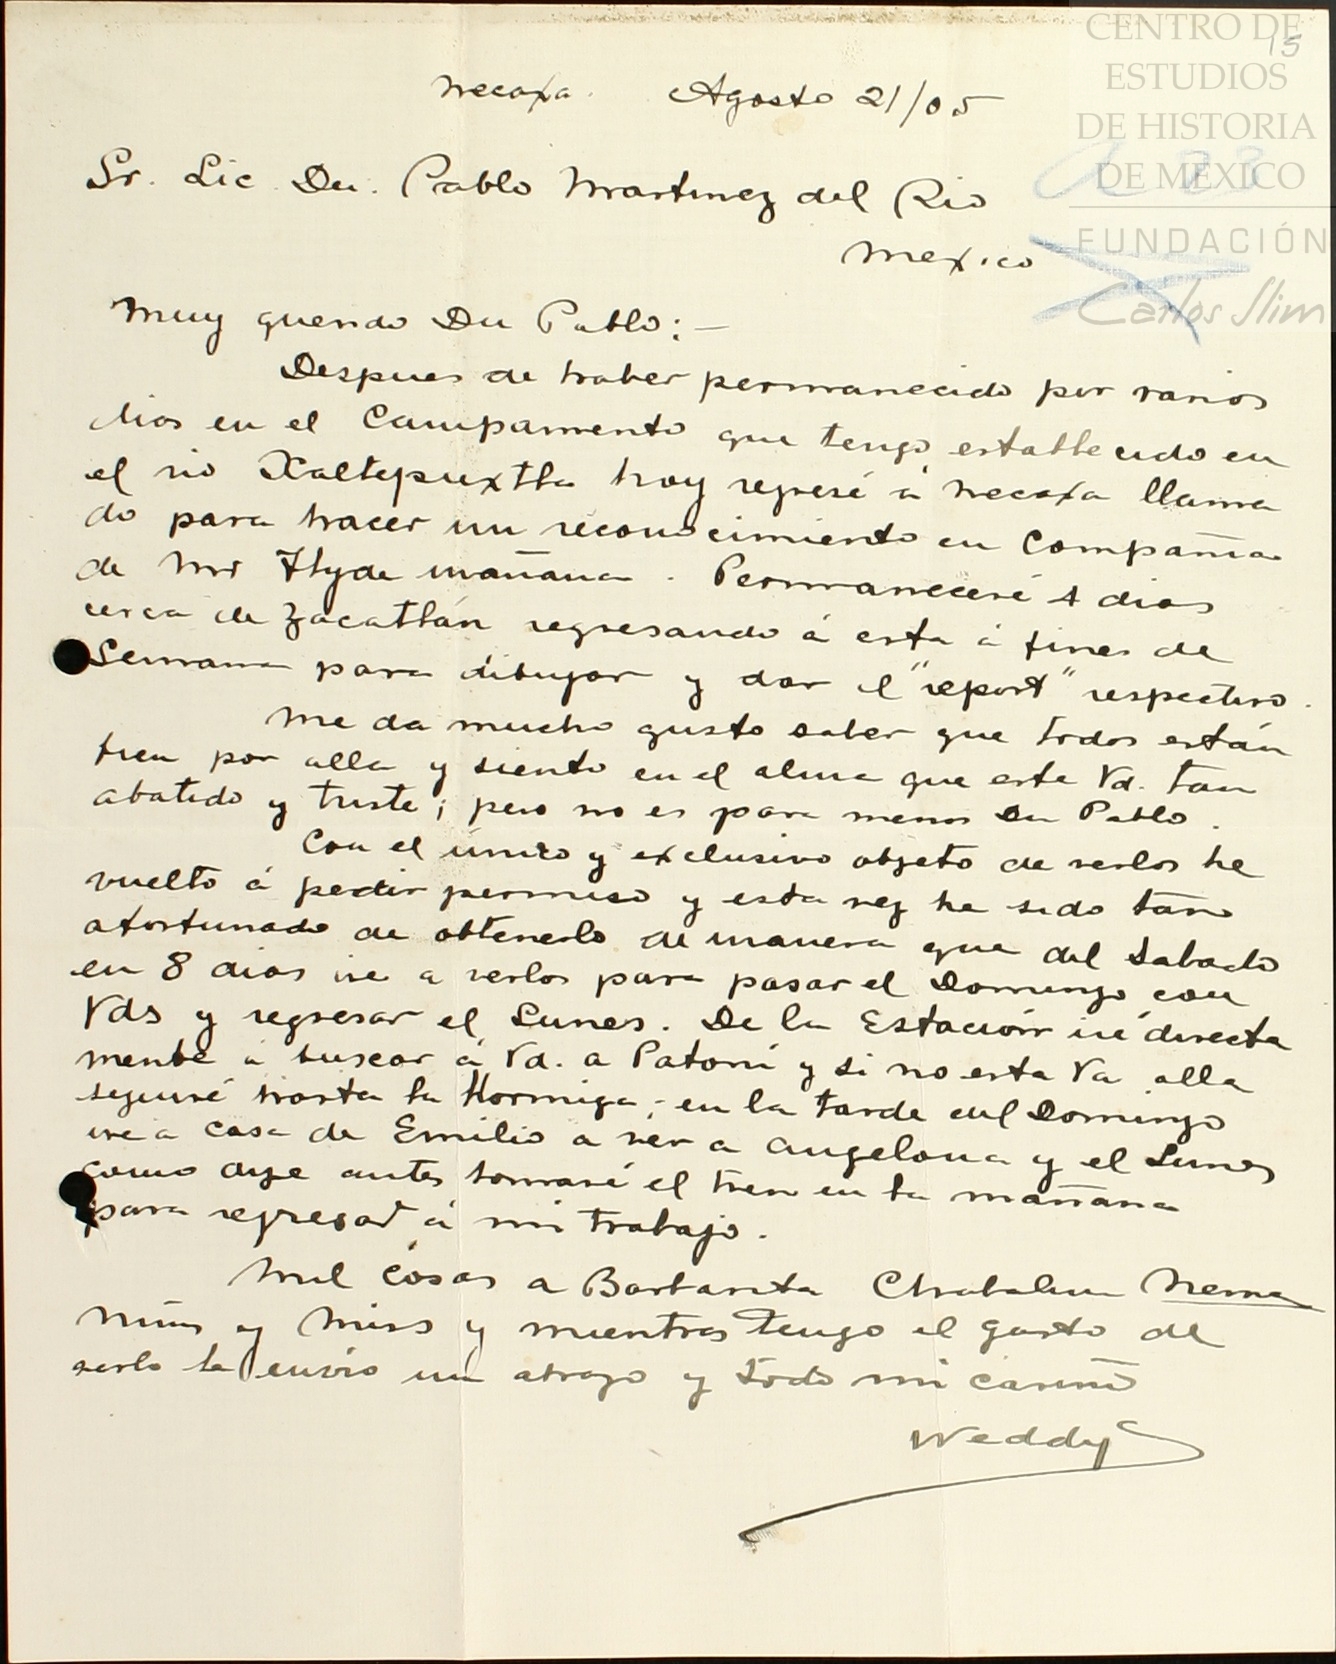 15
CENTRO DE
ESTUDIOS
DE HISTORIA
DE MÉXICO
FUNDACIÓN
Carlos Slim
Necaxa. Agosto 21/05
Sr. Lic. Dn. Pablo Martinez del Rio
Mexico
Muy querido Dn Pablo:—
Despues de haber permanecido por varios
dias en el Campamento que tengo establecido en
el rio Xaltepuxtla hoy regresé á Necaxa llama
do para hacer un reconocimiento en compañia
de Mr Hyde mañana. Permaneceré 4 dias
cerca de Zacatlán regresando á esta á fines de
Semana para dibujar y dar el "report" respectivo.
Me da mucho gusto saber que todos están
bien por alla y siento en el alma que este Vd. tan
abatido y triste; pero no es para menos Dn Pablo.
Con el único y exclusivo objeto de verlos he
vuelto á pedir permiso y esta vez he sido tan
afortunado de obtenerlo de manera que del Sabado
en 8 dias ire a verlos para pasar el Domingo con
Vds y regresar el Lunes. De la Estación iré directa
mente á buscar á Vd. a Patoni y si no esta Vd alla
seguiré hasta la Hormiga; en la tarde del Domingo
ire a casa de Emilio a ver a Angelona y el Lunes
como dije antes tomaré el tren en la mañana
para regresar á mi trabajo.
Mil cosas a Barbarita Nema
y Miss y mientras tengo el gusto de
verlo le envio un abrazo y todo mi cariño
Weddy